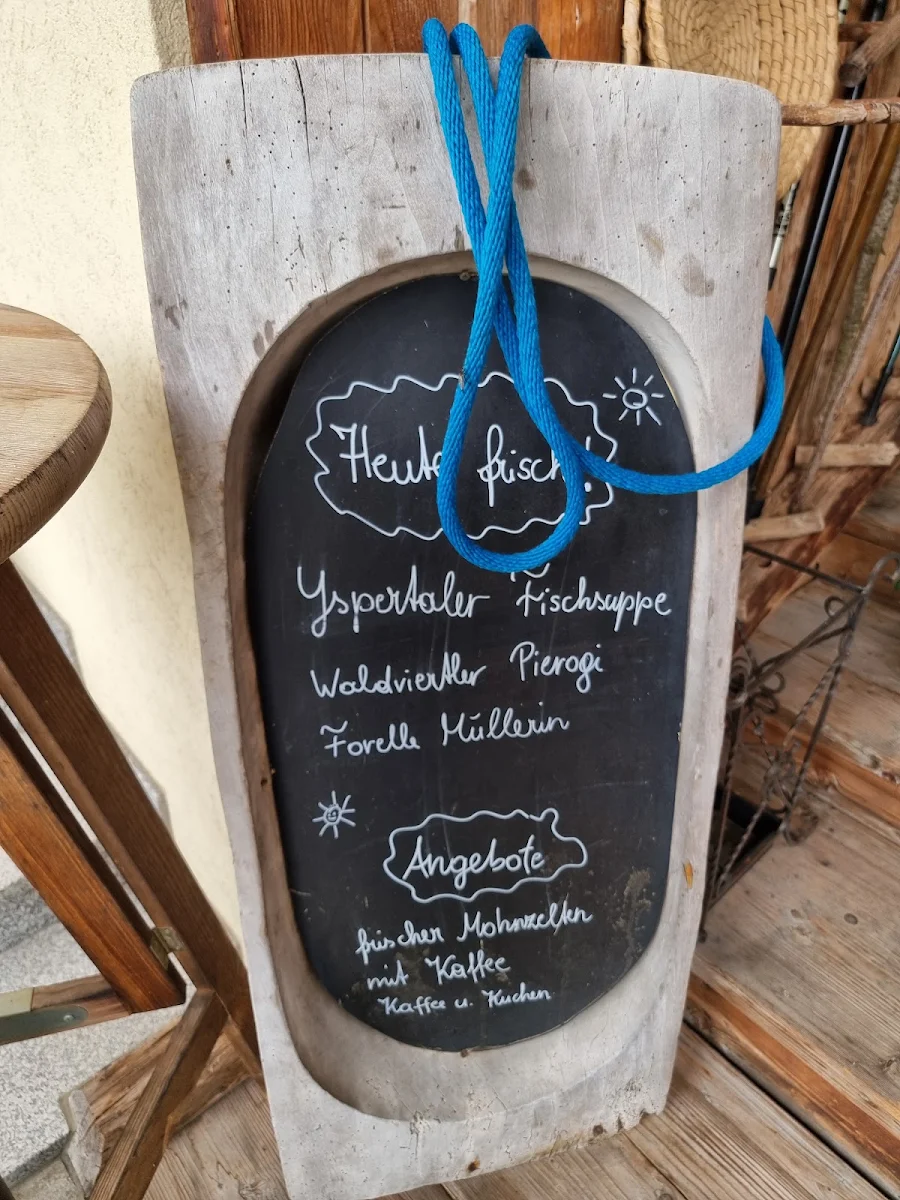 Heute frisch!
Yspertaler Fischsuppe
Waldviertler Pierogi
Forelle Müllerin
Angebote
frischer Mohnzelten
mit Kaffee
Kaffee u. Kuchen